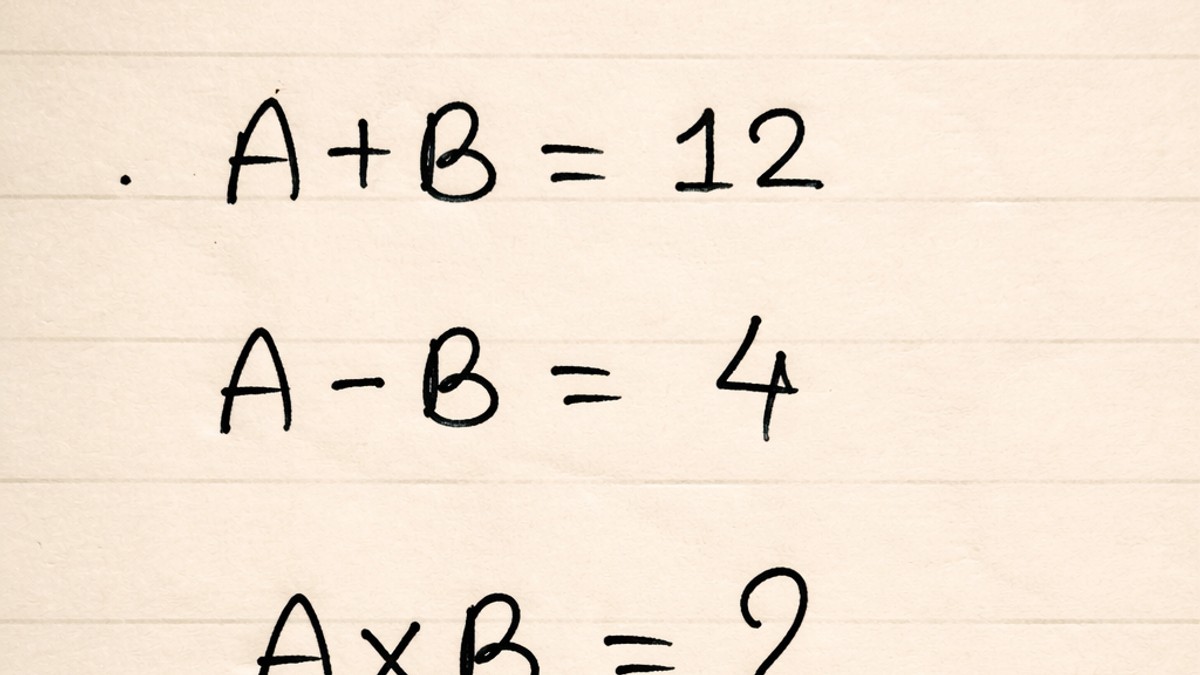 A + B = 12
A - B = 4
A x B = ?